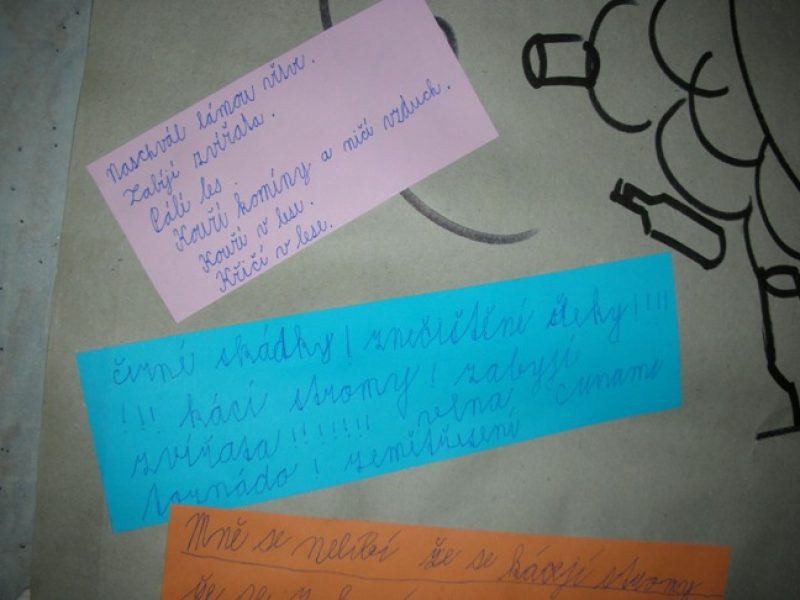 Naschvál lámou větve.
Zabíjí zvířata.
Pálí les.
Kouří komíny a ničí vzduch.
Kouří v lese.
Křičí v lese.
černé skádky! znečištění řeky!!!!
!!! kácí stromy! zabyjí
zvířata!!!!!!! vlna cunami
tornádo! zemětřesení
Mně se nelíbí že se kácejí stromy
že se